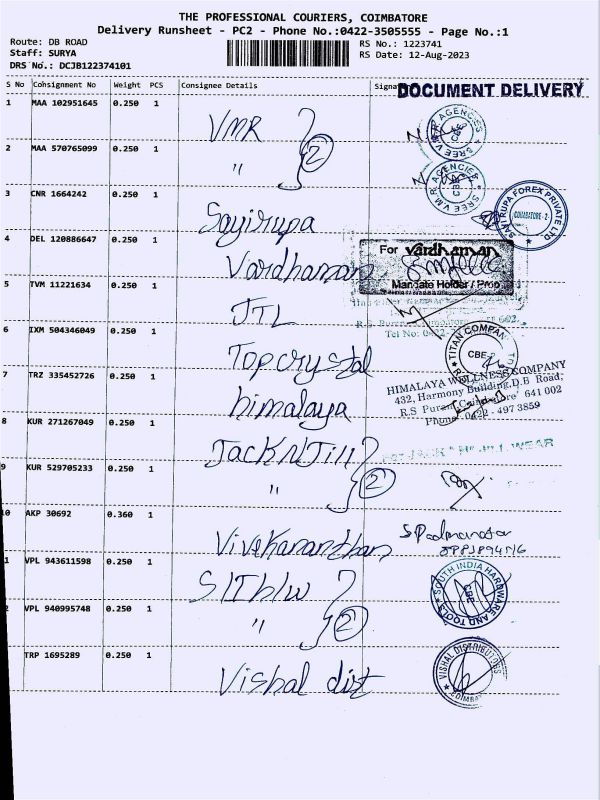 THE PROFESSIONAL COURIERS, COIMBATORE
Delivery Runsheet - PC2 - Phone No.:0422-3505555 - Page No.:1
Route: DB ROAD
RS No.: 1223741
Staff: SURYA
RS Date: 12-Aug-2023
DRS No.: DCJB122374101
S No Consignment No Weight PCS Consignee Details
DOCUMENT DELIVERY
1 MAA 102951645 0.250 1
VMR
SREE V.M.R. AGENCIES CBE
2 MAA 570765099 0.250 1
" 2
SREE V.M.R. AGENCIES CBE
3 CNR 1664242 0.250 1
Sayirupa
SAYIRUPA FOREX PRIVATE LTD COIMBATORE - 2
4 DEL 120886647 0.250 1
Vardhaman
For vardhaman
Mandate Holder / Prop
5 TVM 11221634 0.250 1
JTL
R.S. Puram
Tel No: 0422-
6 IXM 504346049 0.250 1
Topcrystal
TITAN COMPANY CBE-2
7 TRZ 335452726 0.250 1
himalaya
HIMALAYA WELLNESS COMPANY
432, Harmony Building, D.B Road,
R.S Puram, Coimbatore 641 002
Phone: 0422 - 497 3859
8 KUR 271267049 0.250 1
JackNJill
JACK WEAR
9 KUR 529705233 0.250 1
" 2
10 AKP 30692 0.360 1
Vivekanandhan
1 VPL 943611598 0.250 1
SITHW
SOUTH INDIA HARDWARE AND TOOLS CBE
2 VPL 940995748 0.250 1
" 2
TRP 1695289 0.250 1
Vishal dist
VISHAL DISTRIBUTORS